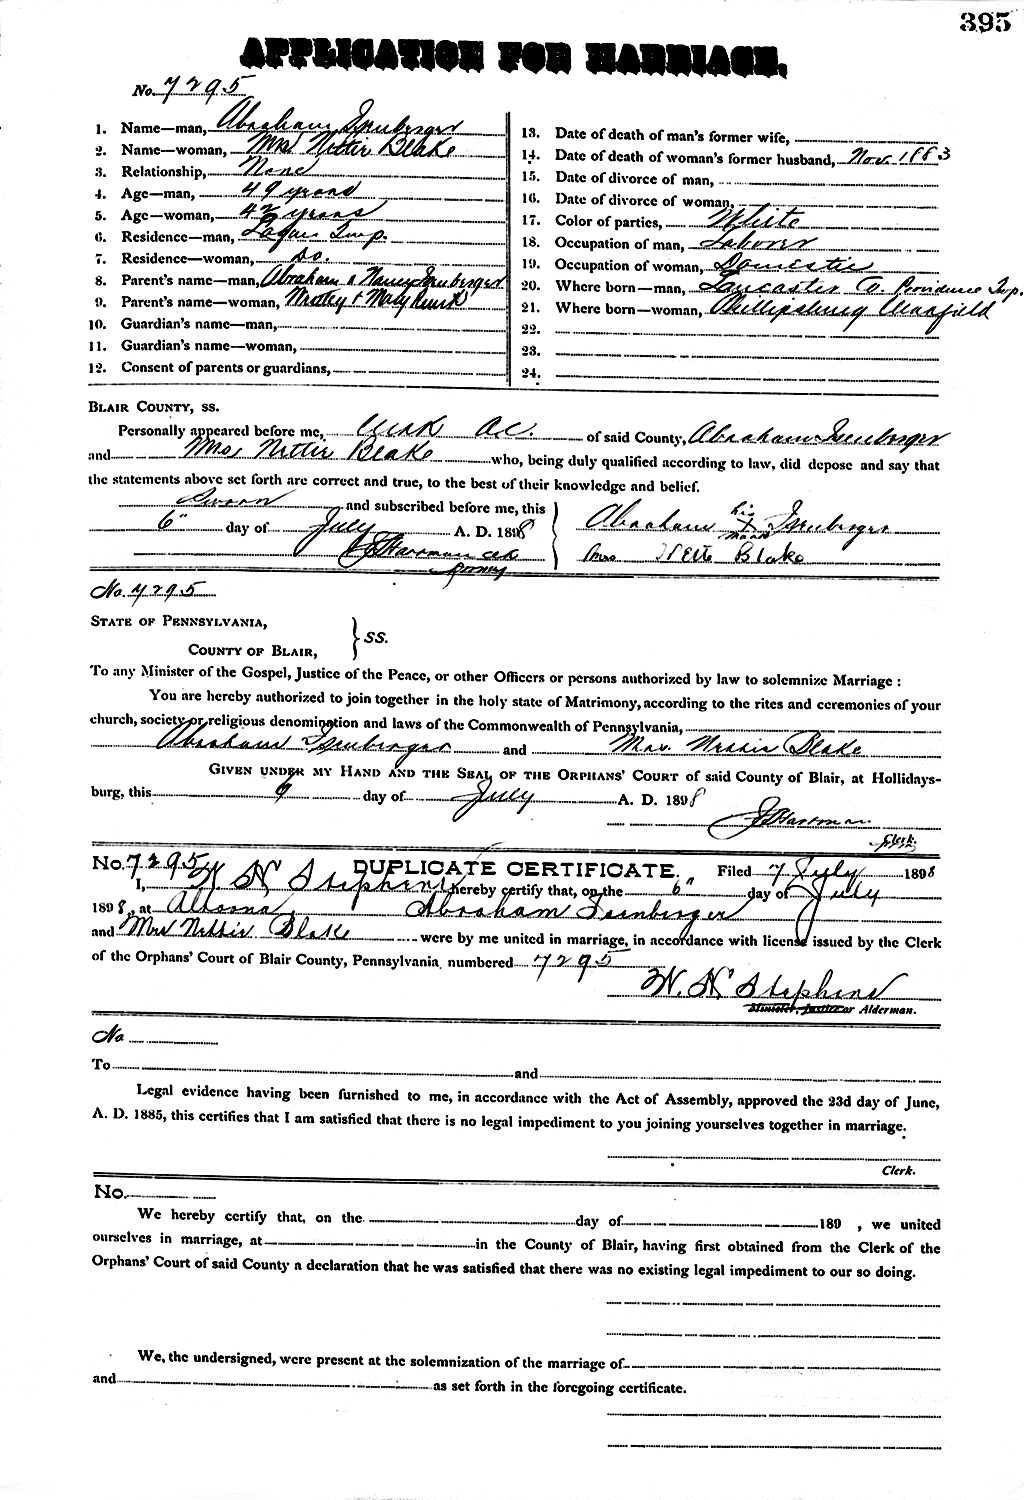 395
APPLICATION FOR MARRIAGE.
No. 7295
1. Name—man, Abraham Isenberger
2. Name—woman, Mrs Nettie Blake
3. Relationship, None
4. Age—man, 49 years
5. Age—woman, 42 years
6. Residence—man, Logan Twp.
7. Residence—woman, Do.
8. Parent's name—man, Abraham & Nancy Isenberger
9. Parent's name—woman, & Mary
10. Guardian's name—man,
11. Guardian's name—woman,
12. Consent of parents or guardians,
13. Date of death of man's former wife,
14. Date of death of woman's former husband, Nov. 1883
15. Date of divorce of man,
16. Date of divorce of woman,
17. Color of parties, White
18. Occupation of man, Laborer
19. Occupation of woman, Domestic
20. Where born—man, Lancaster Co. Providence Twp.
21. Where born—woman, Phillipsburg Clearfield
22.
23.
24.
BLAIR COUNTY, SS.
Personally appeared before me, Clerk O.C. of said County, Abraham Isenberger
and Mrs. Nettie Blake who, being duly qualified according to law, did depose and say that
the statements above set forth are correct and true, to the best of their knowledge and belief.
Sworn and subscribed before me, this
6" day of July A. D. 1898
Abraham his X mark Isenberger
Mrs Nette Blake
No. 7295
STATE OF PENNSYLVANIA,
COUNTY OF BLAIR, } SS.
To any Minister of the Gospel, Justice of the Peace, or other Officers or persons authorized by law to solemnize Marriage :
You are hereby authorized to join together in the holy state of Matrimony, according to the rites and ceremonies of your
church, society or religious denomination and laws of the Commonwealth of Pennsylvania,
Abraham Isenberger and Mrs. Nettie Blake
GIVEN UNDER MY HAND AND THE SEAL OF THE ORPHANS' COURT of said County of Blair, at Hollidays-
burg, this 6 day of July A. D. 1898
Clerk.
No. 7295 DUPLICATE CERTIFICATE. Filed 7 July 1898
I, W N Stephens hereby certify that, on the 6" day of July
1898, at Altoona, Abraham Isenberger
and Mrs Nettie Blake were by me united in marriage, in accordance with license issued by the Clerk
of the Orphans' Court of Blair County, Pennsylvania, numbered 7295
W. N. Stephens
Minister, Justice or Alderman.
No
To and
Legal evidence having been furnished to me, in accordance with the Act of Assembly, approved the 23d day of June,
A. D. 1885, this certifies that I am satisfied that there is no legal impediment to you joining yourselves together in marriage.
Clerk.
No.
We hereby certify that, on the day of 189 , we united
ourselves in marriage, at in the County of Blair, having first obtained from the Clerk of the
Orphans' Court of said County a declaration that he was satisfied that there was no existing legal impediment to our so doing.
We, the undersigned, were present at the solemnization of the marriage of
and as set forth in the foregoing certificate.